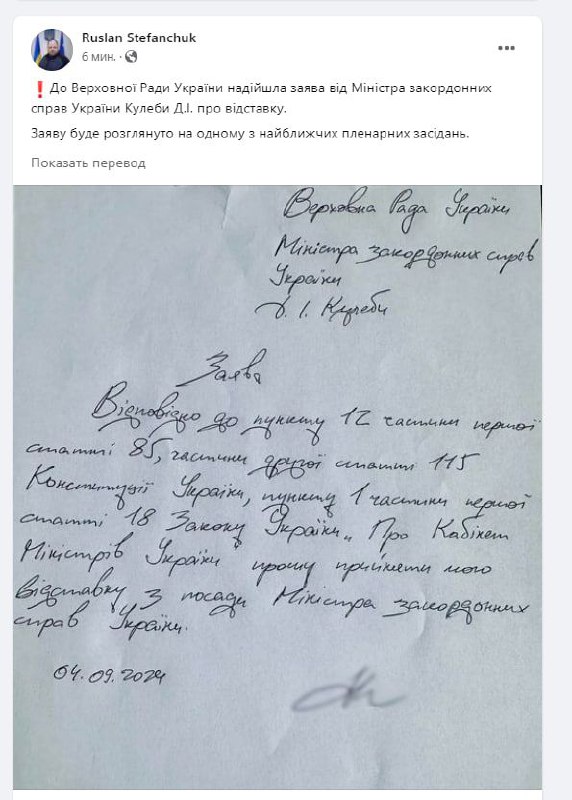 Ruslan Stefanchuk
6 мин. ·
❗До Верховної Ради України надійшла заява від Міністра закордонних
справ України Кулеби Д.І. про відставку.
Заяву буде розглянуто на одному з найближчих пленарних засідань.
Показать перевод
Верховна Рада України
Міністра закордонних справ
України
Д. І. Кулеби
Заява
Відповідно до пункту 12 частини першої
статті 85, частини другої статті 115
Конституції України, пункту 1 частини першої
статті 18 Закону України „Про Кабінет
Міністрів України прошу прийняти мою
відставку з посади Міністра закордонних
справ України.
04.09.2024